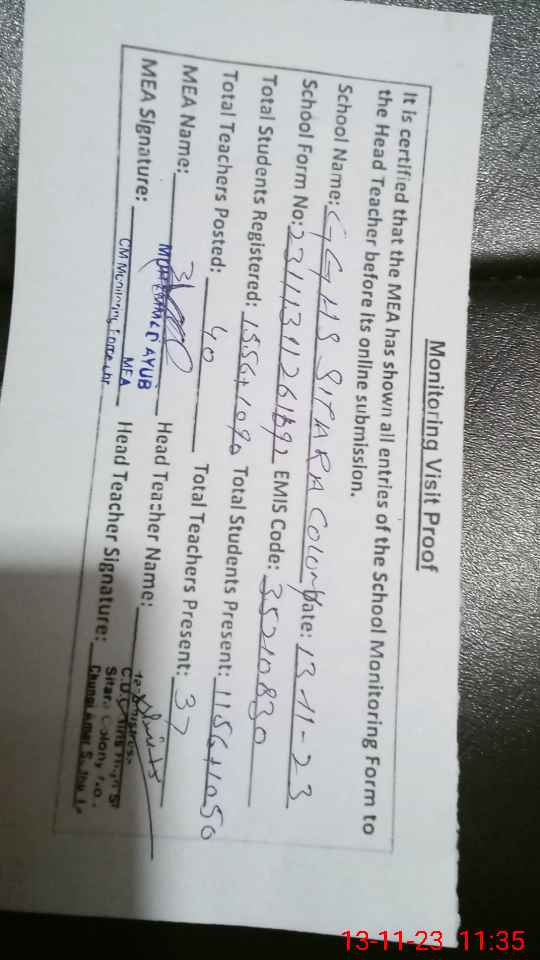 Monitoring Visit Proof
It is certified that the MEA has shown all entries of the School Monitoring Form to
the Head Teacher before its online submission.
School Name: GGHS SITARA COLONY Date: 13-11-23
School Form No: EMIS Code: 35210830
Total Students Registered: Total Students Present: 1156+1050
Total Teachers Posted: 40 Total Teachers Present: 37
MEA Name: Head Teacher Name:
MUHAMMED AYUB
MEA Signature: MEA Head Teacher Signature:
CM Monitoring Force
Sitara Colony
13-11-23 11:35